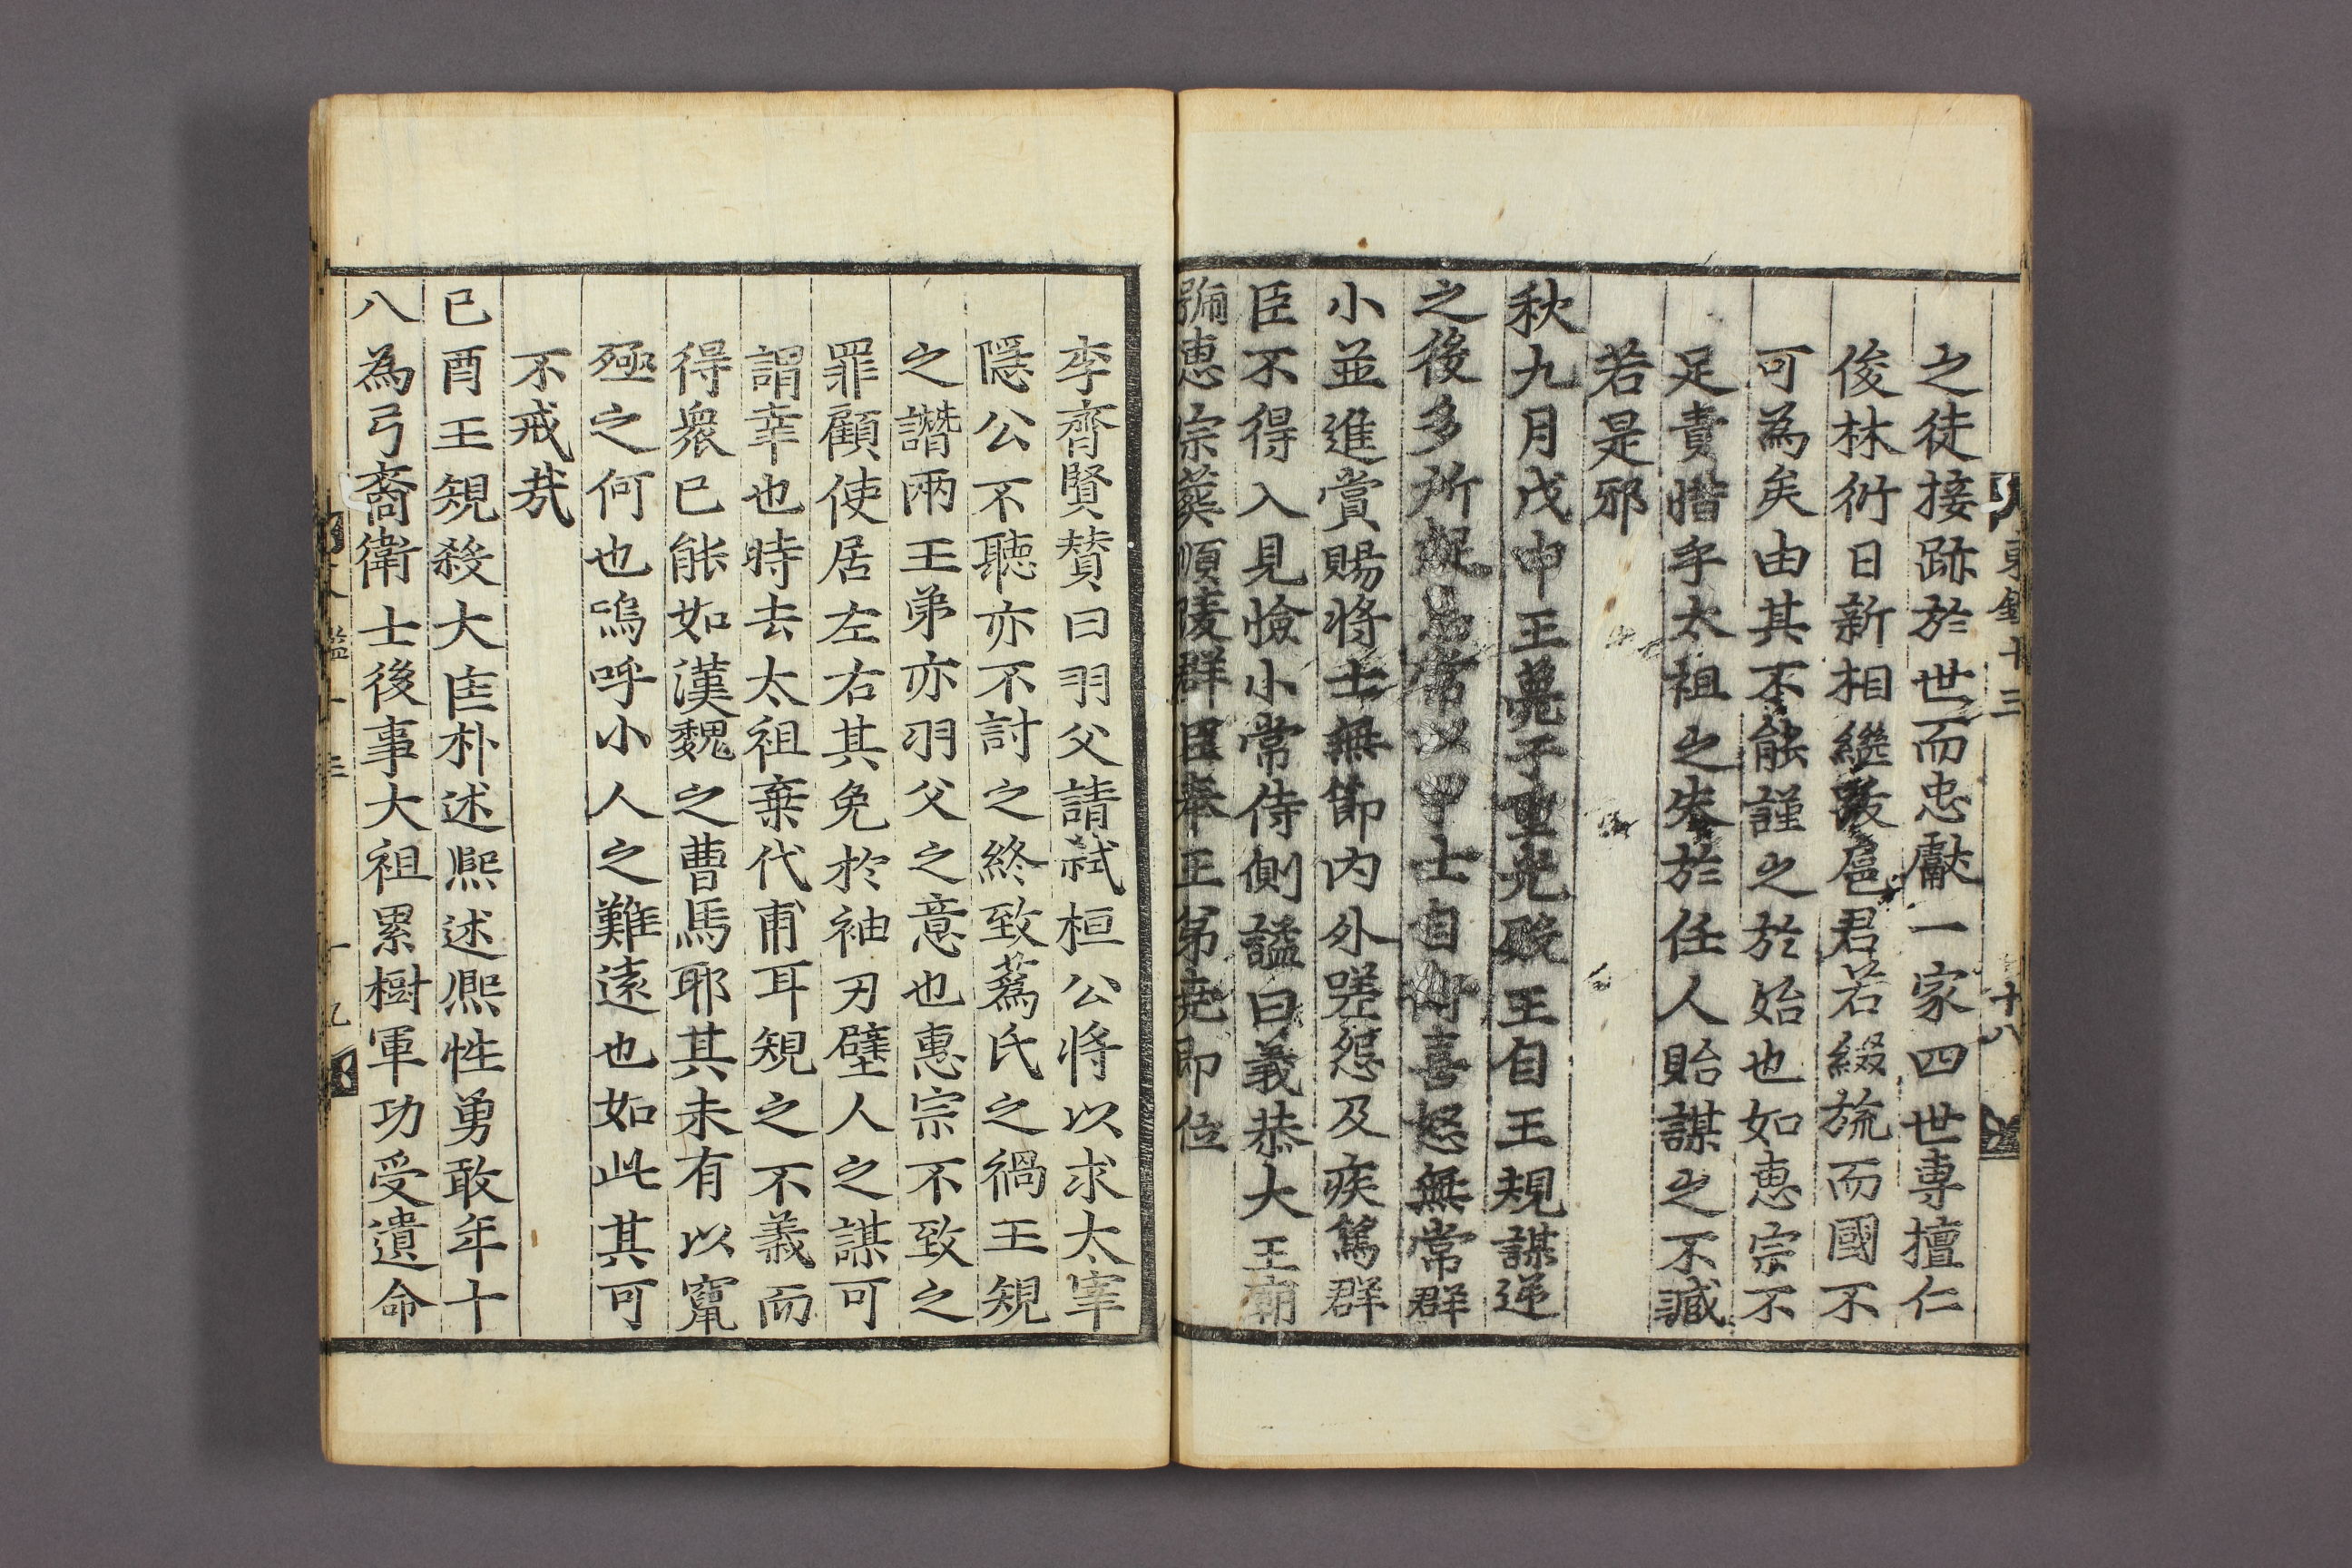 東鑑十三
十八
之徒接跡於世而忠獻一家四世專擅仁
俊林衍日新相繼跋扈君若綴旒而國不
可為矣由其不能謹之於始也如惠宗不
足責惜乎太祖之失於任人貽謀之不臧
若是邪
秋九月戊申王薨于重光殿王自王規謀逆
之後多所疑忌常以甲士自衛喜怒無常群
小並進賞賜將士無節内外嗟怨及疾篤群
臣不得入見憸小常侍側謚曰義恭大王廟
號惠宗葬順陵群臣奉王弟堯即位
李齊賢賛曰羽父請弑桓公將以求太宰
隱公不聽亦不討之終致蔿氏之禍王規
之譖兩王弟亦羽父之意也惠宗不致之
罪顧使居左右其免於袖刃壁人之謀可
謂幸也時去太祖棄代甫耳規之不義而
得衆已能如漢魏之曹馬耶其未有以竄
殛之何也嗚呼小人之難逺也如此其可
不戒㦲
已酉王規殺大匡朴述熙述熙性勇敢年十
八為弓裔衛士後事大祖累樹軍功受遺命
十三
十九